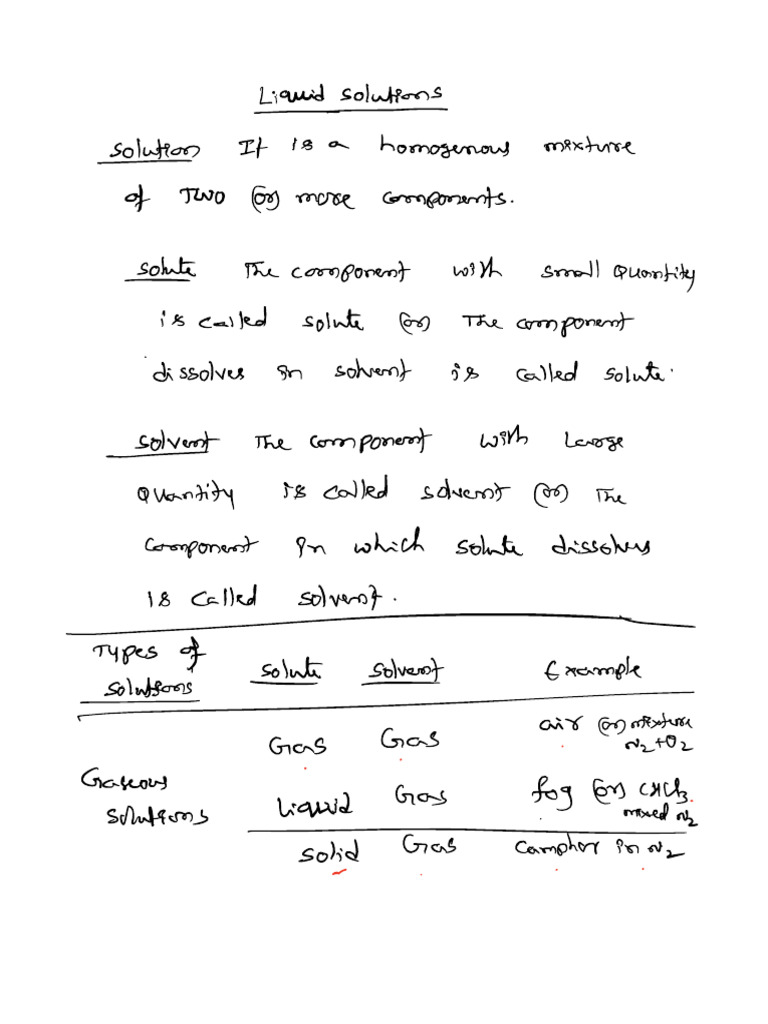 Liquid solutions
solution It is a homogenous mixture
of Two (or) more components.
solute The component with small Quantity
is called solute (or) The component
dissolves in solvent is called solute.
solvent The component with Large
Quantity is called solvent (or) The
component in which solute dissolves
is called solvent.
Types of solutions solute solvent Example
Gas Gas air (or) mixture N2+O2
Gaseous solutions Liquid Gas fog (or) CHCl3 mixed N2
Solid Gas Camphor in N2